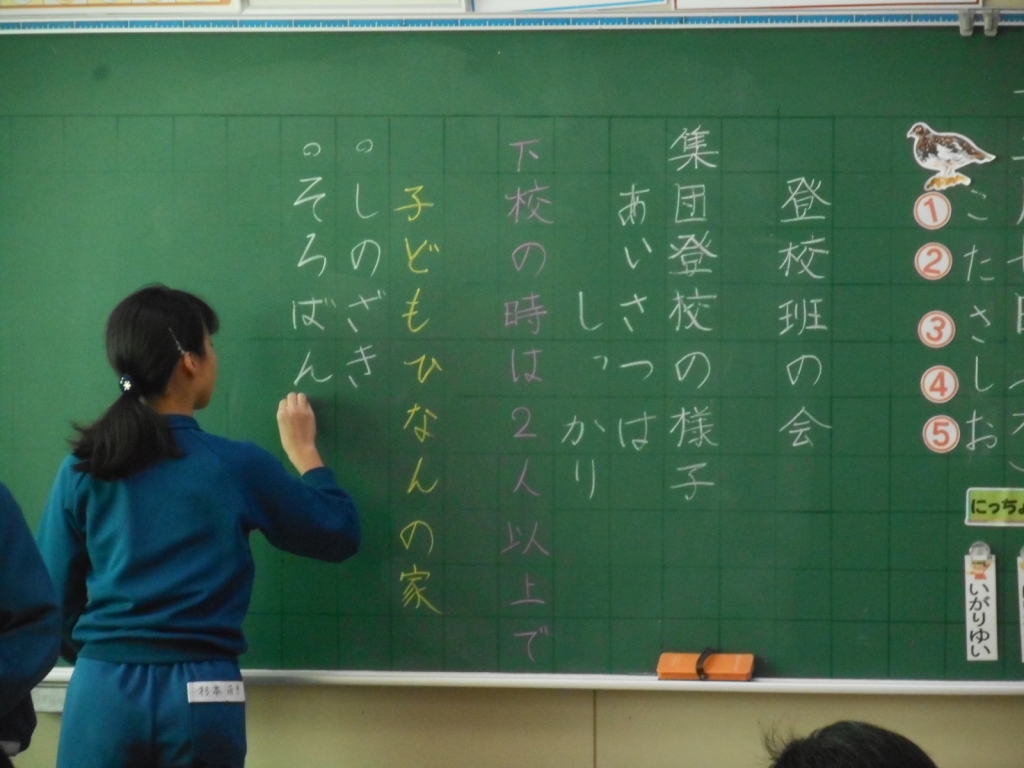 ① こ
② た
③ さ
④ し
⑤ お
にっちょ
いがりゆい
登校班の会
集団登校の様子
あいさつは
しっかり
下校の時は2人以上で
子どもひなんの家
。しのざき
。そろばん
杉本